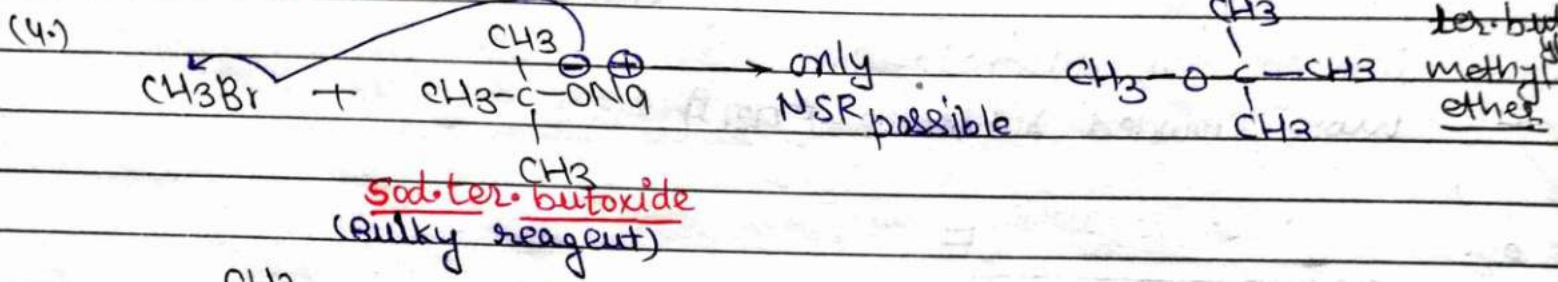 (4.)
CH3Br + CH3-C-ONa ⊖ ⊕ → only NSR possible CH3-O-C-CH3
CH3
CH3
CH3
CH3
methyl
ether
sod.ter.butoxide
(Bulky reagent)